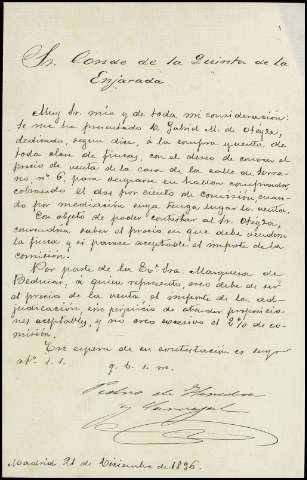 Sr. Conde de la Quinta de la
Enjarada
Muy Sr. mío y de toda mi consideración:
Se me ha presentado D. Gabriel M. de Oteyza,
dedicado, según dice, á la compra y venta de
toda clase de fincas, con el deseo de conocer el
precio de venta de la casa de la calle de
nº 6, para ocuparse en hallar comprador,
cobrando el dos por ciento de comisión, cuan-
do por mediación suya tenga lugar la venta.
Con objeto de poder contestar al Sr. Oteyza,
convendría saber el precio en que debe venderse
la finca y si parece aceptable el importe de la
comisión.
Por parte de la Exª Sra. Marquesa de
Bedmar, á quien represento, creo debe de ser
el precio de la venta el importe de la ad-
judicación, sin perjuicio de atender proposicio-
nes aceptables, y no creo excesivo el 2% de co-
misión.
En espera de su contestación es suyo
atº. s. s.
q. b. s. m.
Pedro de
y Carvajal
Madrid 21 de Diciembre de 1896.